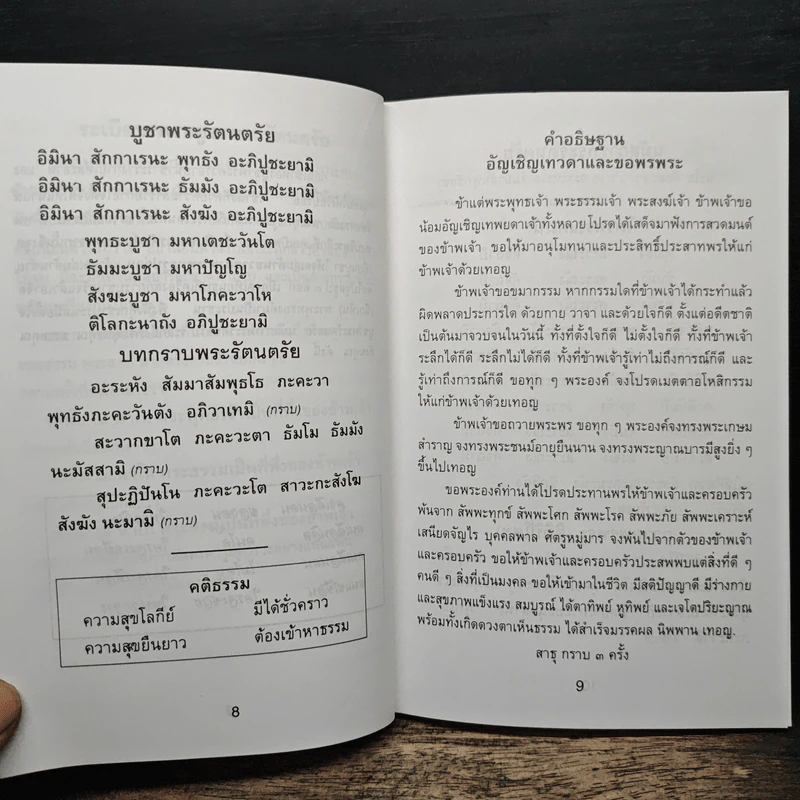 บูชาพระรัตนตรัย
อิมินา สักกาเรนะ พุทธัง อะภิปูชะยามิ
อิมินา สักกาเรนะ ธัมมัง อะภิปูชะยามิ
อิมินา สักกาเรนะ สังฆัง อะภิปูชะยามิ
พุทธะบูชา มหาเตชะวันโต
ธัมมะบูชา มหาปัญโญ
สังฆะบูชา มหาโภคะวาโห
ติโลกะนาถัง อภิปูชะยามิ
บทกราบพระรัตนตรัย
อะระหัง สัมมาสัมพุทโธ ภะคะวา
พุทธังภะคะวันตัง อภิวาเทมิ (กราบ)
สะวากขาโต ภะคะวะตา ธัมโม ธัมมัง
นะมัสสามิ (กราบ)
สุปะฏิปันโน ภะคะวะโต สาวะกะสังโฆ
สังฆัง นะมามิ (กราบ)
คติธรรม
ความสุขโลกีย์ มีได้ชั่วคราว
ความสุขยืนยาว ต้องเข้าหาธรรม
8
คำอธิษฐาน
อัญเชิญเทวดาและขอพรพระ
ข้าแต่พระพุทธเจ้า พระธรรมเจ้า พระสงฆ์เจ้า ข้าพเจ้าขอ
น้อมอัญเชิญเทพยดาเจ้าทั้งหลายโปรดได้เสด็จมาฟังการสวดมนต์
ของข้าพเจ้า ขอให้มาอนุโมทนาและประสิทธิ์ประสาทพรให้แก่
ข้าพเจ้าด้วยเทอญ
ข้าพเจ้าขอขมากรรม หากกรรมใดที่ข้าพเจ้าได้กระทำแล้ว
ผิดพลาดประการใด ด้วยกาย วาจา และด้วยใจก็ดี ตั้งแต่อดีตชาติ
เป็นต้นมาจวบจนในวันนี้ ทั้งที่ตั้งใจก็ดี ไม่ตั้งใจก็ดี ทั้งที่ข้าพเจ้า
ระลึกได้ก็ดี ระลึกไม่ได้ก็ดี ทั้งที่ข้าพเจ้ารู้เท่าไม่ถึงการณ์ก็ดี และ
รู้เท่าถึงการณ์ก็ดี ขอทุก ๆ พระองค์ จงโปรดเมตตาอโหสิกรรม
ให้แก่ข้าพเจ้าด้วยเทอญ
ข้าพเจ้าขอถวายพระพร ขอทุก ๆ พระองค์จงทรงพระเกษม
สำราญ จงทรงพระชนม์อายุยืนนาน จงทรงพระญาณบารมีสูงยิ่ง ๆ
ขึ้นไปเทอญ
ขอพระองค์ท่านได้โปรดประทานพรให้ข้าพเจ้าและครอบครัว
พ้นจาก สัพพะทุกข์ สัพพะโศก สัพพะโรค สัพพะภัย สัพพะเคราะห์
เสนียดจัญไร บุคคลพาล ศัตรูหมู่มาร จงพ้นไปจากตัวของข้าพเจ้า
และครอบครัว ขอให้ข้าพเจ้าและครอบครัวประสพพบแต่สิ่งที่ดี ๆ
คนดี ๆ สิ่งที่เป็นมงคล ขอให้เข้ามาในชีวิต มีสติปัญญาดี มีร่างกาย
และสุขภาพแข็งแรง สมบูรณ์ ได้ตาทิพย์ หูทิพย์ และเจโตปริยะญาณ
พร้อมทั้งเกิดดวงตาเห็นธรรม ได้สำเร็จมรรคผล นิพพาน เทอญ.
สาธุ กราบ ๓ ครั้ง
9